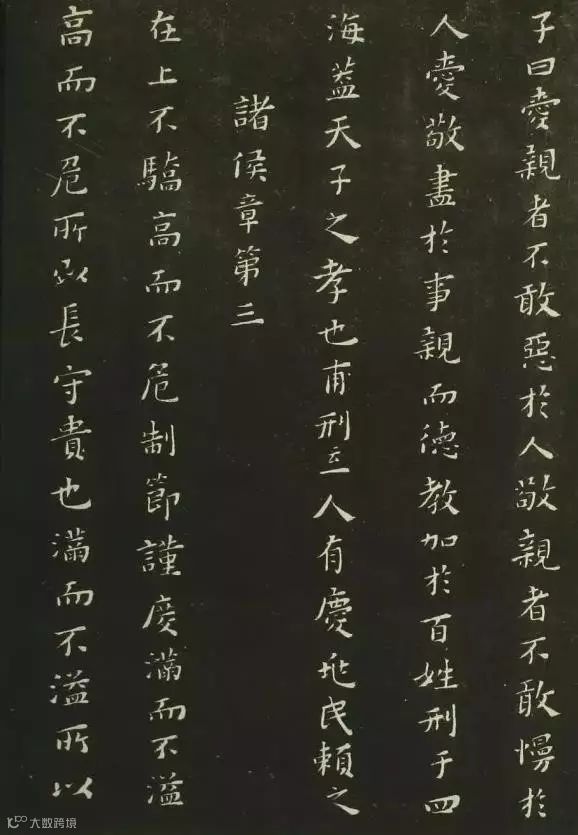 子曰愛親者不敢惡於人敬親者不敢慢於
人愛敬盡於事親而德教加於百姓刑于四
海蓋天子之孝也甫刑云一人有慶兆民賴之
諸侯章第三
在上不驕高而不危制節謹度滿而不溢
高而不危所以長守貴也滿而不溢所以
大数跨境